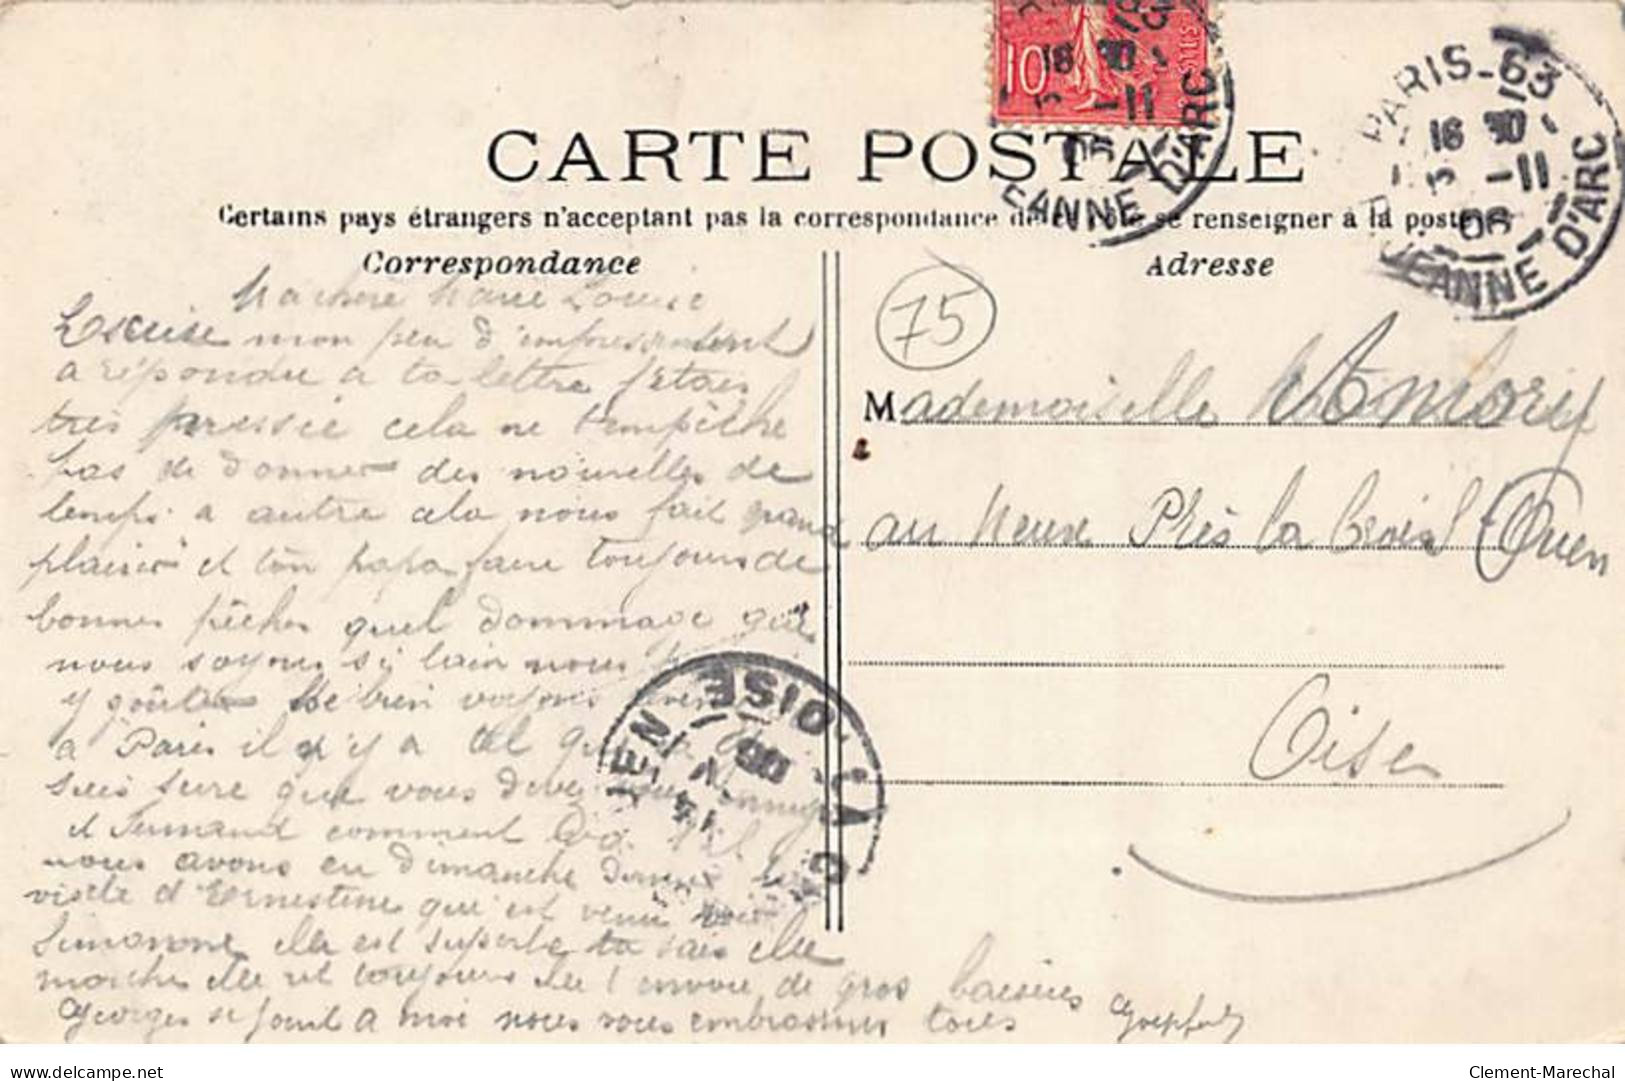 CARTE POSTALE
Certains pays étrangers n'acceptant pas la correspondance de se renseigner à la poste
Correspondance
Adresse
10
PARIS-63
16 30
5 -11
06
JEANNE D'ARC
75
Ma chère Marie Louise
Escuise mon peu d'empressement
a répondu a ta lettre j'étais
très pressée cela ne t'empêche
pas de donner des nouvelles de
temps a autre cela nous fait grand
plaisir et ton papa faire toujours de
bonnes pêches quel dommage que
nous soyons si loin nous
y goûter bien voyons
a Paris il n'y a tel que
suis sure que vous
et Fernand comment
nous avons eu dimanche dernier la
visite d'Ernestine qui est venu voir
Simonone elle est superbe tu sais elle
marche elle rit toujours elle t'envoie de gros baisers
Georges se joint a moi nous vous embrassons tous
Mademoiselle Amlory
au Meux Près la Croix St Ouen
Oise
OISE